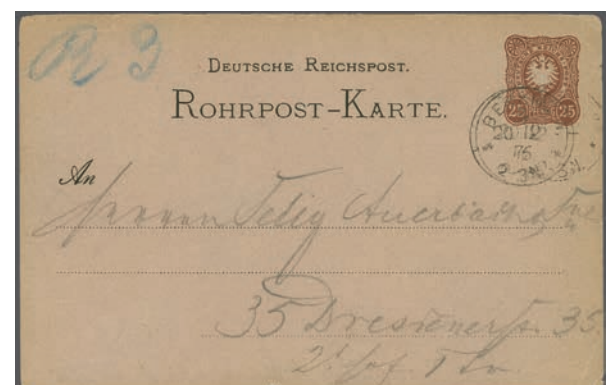 R 3
DEUTSCHE REICHSPOST.
ROHRPOST-KARTE.
25 25
BERLIN
20 12
76
An
Herren Felix Auerbach
35 Dresdenerstr. 35